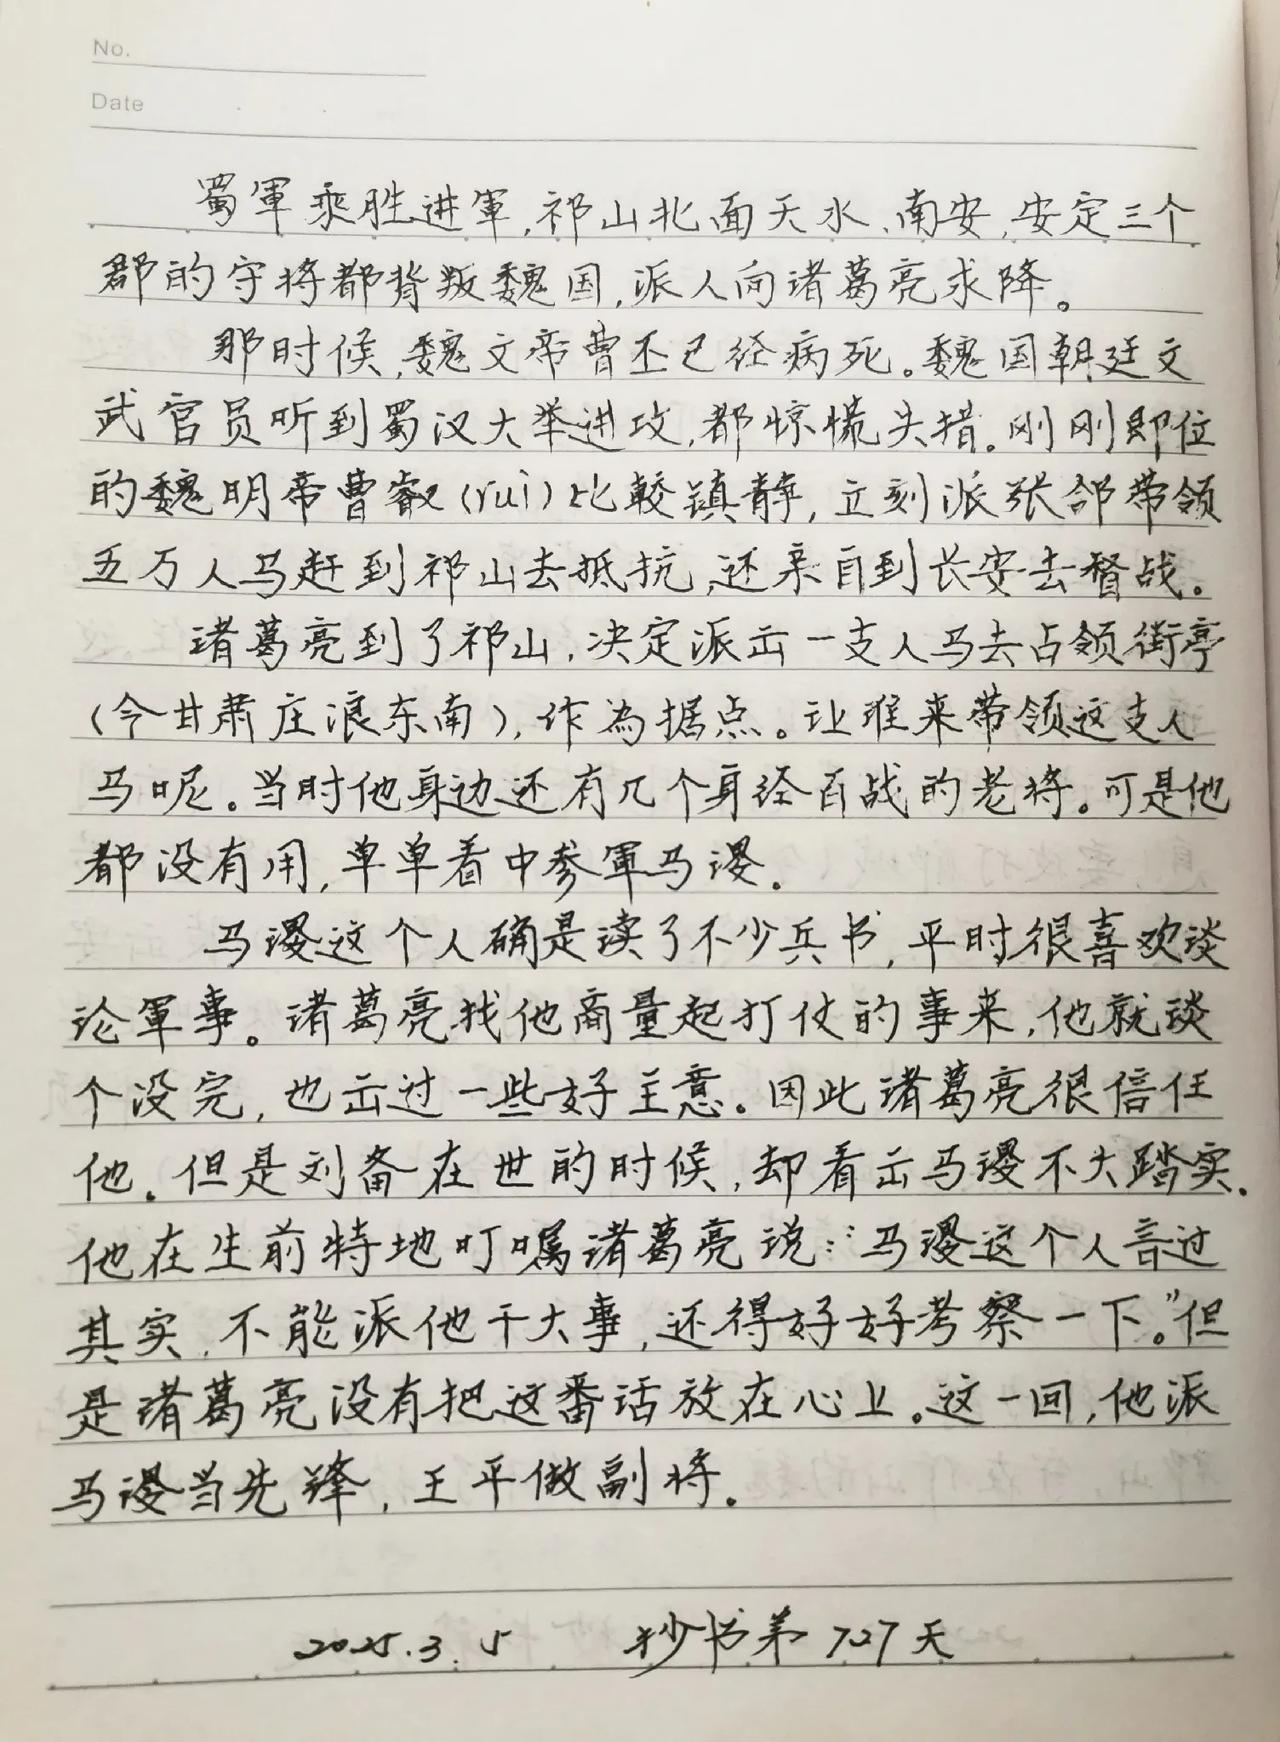 No.
Date
蜀軍乘胜进軍,祁山北面天水、南安,安定三个
郡的守将都背叛魏国,派人向诸葛亮求降。
那时候,魏文帝曹丕已经病死。魏国朝廷文
武官员听到蜀汉大举进攻,都惊慌失措。刚刚即位
的魏明帝曹叡(ruì)比较镇静,立刻派张郃带领
五万人马赶到祁山去抵抗,还亲自到长安去督战。
诸葛亮到了祁山,决定派出一支人马去占领街亭
(今甘肃庄浪东南),作為据点。让谁来带领这支人
马呢。当时他身边还有几个身经百战的老将。可是他
都没有用,单单看中参軍马谡。
马谡这个人确是读了不少兵书,平时很喜欢谈
论軍事。诸葛亮找他商量起打仗的事来,他就谈
个没完,也出过一些好主意。因此诸葛亮很信任
他。但是刘备在世的时候,却看出马谡不大踏实.
他在生前特地叮嘱诸葛亮说:“马谡这个人言过
其实,不能派他干大事,还得好好考察一下。”但
是诸葛亮没有把这番话放在心上。这一回,他派
马谡当先锋,王平做副将。
2025.3.5 抄书第727天